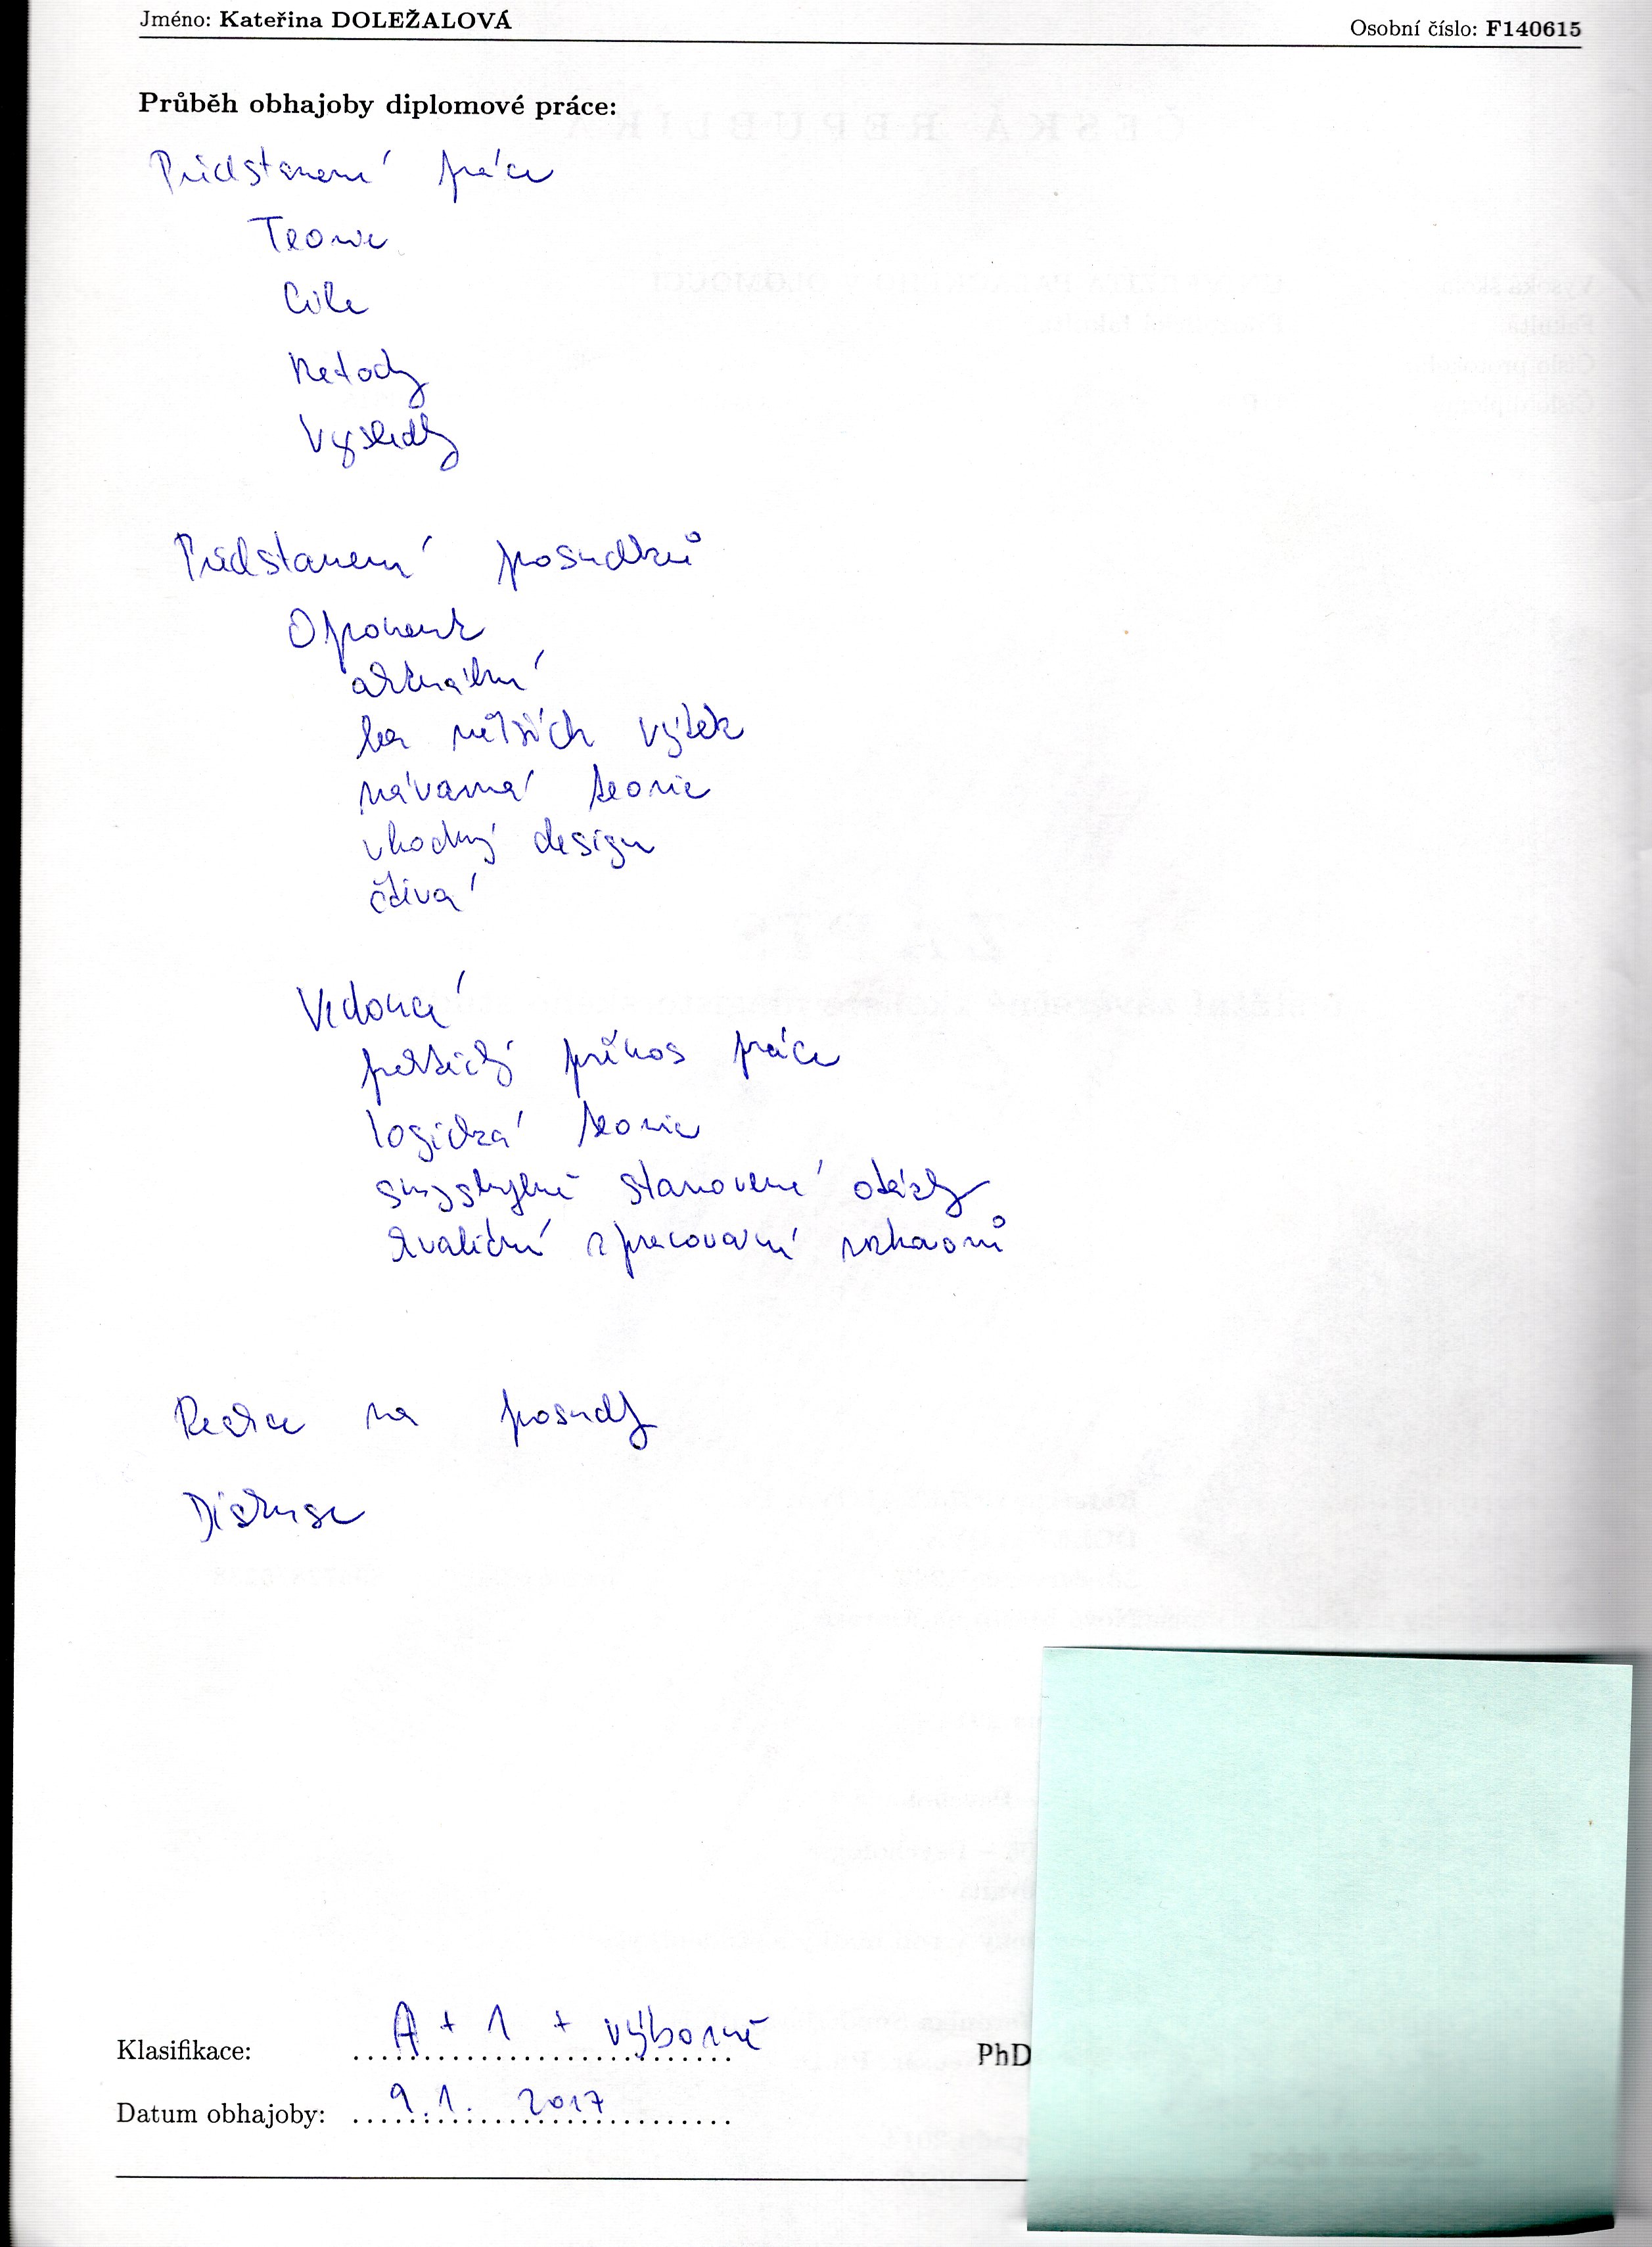 Jméno: Kateřina DOLEŽALOVÁ
Osobní číslo: F140615
Průběh obhajoby diplomové práce:
Představení práce
Teorie
Cíle
Metody
Výsledky
Představení posudků
Oponent
aktuální
bez větších výtek
návazná teorie
vhodný design
čtivá
Vedoucí
praktický přínos práce
logická teorie
smysluplně stanovené otázky
kvalitní zpracování rozhovorů
Reakce na posudky
Diskuse
Klasifikace: A + 1 + výborně
PhD
Datum obhajoby: 9.1. 2017